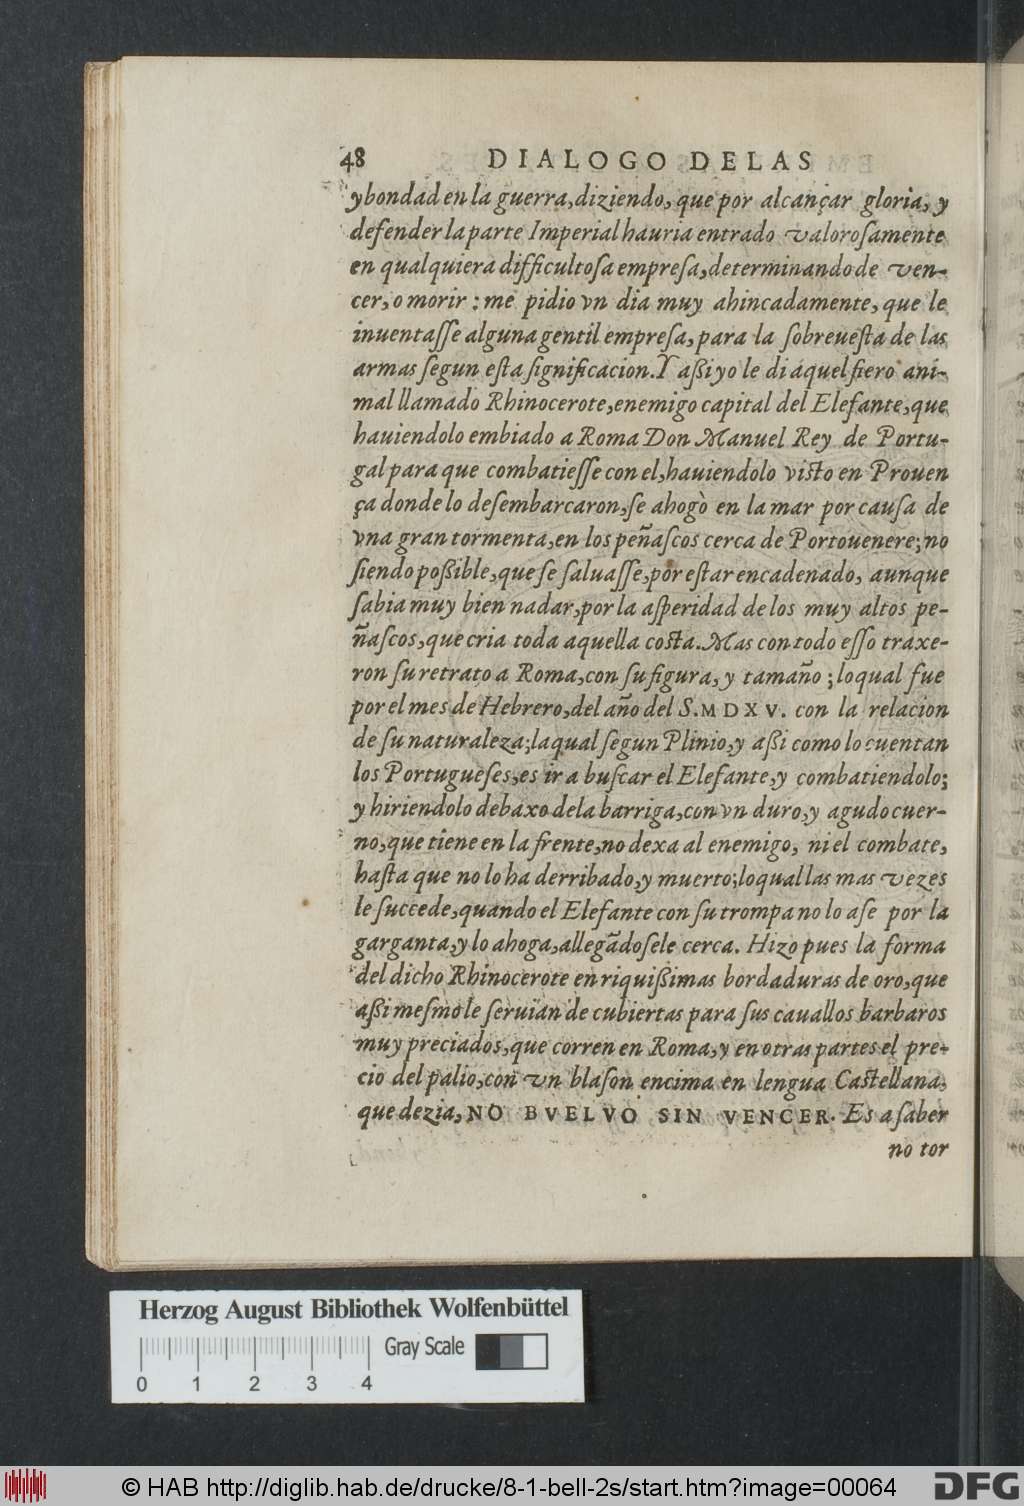 48 DIALOGO DELAS
y bondad en la guerra, diziendo, que por alcançar gloria, y
defender la parte Imperial hauria entrado valorosamente
en qualquiera difficultosa empresa, determinando de ven-
cer, o morir : me pidio vn dia muy ahincadamente, que le
inuentasse alguna gentil empresa, para la sobreuesta de las
armas segun esta significacion. Y aßi yo le di aquel fiero ani-
mal llamado Rhinocerote, enemigo capital del Elefante, que
hauiendolo embiado a Roma Don Manuel Rey de Portu-
gal para que combatiesse con el, hauiendolo visto en Prouen
ça donde lo desembarcaron, se ahogò en la mar por causa de
vna gran tormenta, en los peñascos cerca de Portouenere; no
siendo poßible, que se saluasse, por estar encadenado, aunque
sabia muy bien nadar, por la asperidad de los muy altos pe-
ñascos, que cria toda aquella costa. Mas con todo esso traxe-
ron su retrato a Roma, con su figura, y tamaño ; lo qual fue
por el mes de Hebrero, del año del S. MDXV. con la relacion
de su naturaleza; la qual segun Plinio, y aßi como lo cuentan
los Portugueses, es ir a buscar el Elefante, y combatiendolo;
y hiriendolo debaxo dela barriga, con vn duro, y agudo cuer-
no, que tiene en la frente, no dexa al enemigo, ni el combate,
hasta que no lo ha derribado, y muerto; lo qual las mas vezes
le succede, quando el Elefante con su trompa no lo ase por la
garganta, y lo ahoga, allegãdosele cerca. Hizo pues la forma
del dicho Rhinocerote en riquißimas bordaduras de oro, que
aßi mesmo le seruian de cubiertas para sus cauallos barbaros
muy preciados, que corren en Roma, y en otras partes el pre-
cio del palio, con vn blason encima en lengua Castellana,
que dezia, NO BVELVO SIN VENCER. Es a saber
no tor
Herzog August Bibliothek Wolfenbüttel
Gray Scale
0 1 2 3 4
© HAB http://diglib.hab.de/drucke/8-1-bell-2s/start.htm?image=00064
DFG